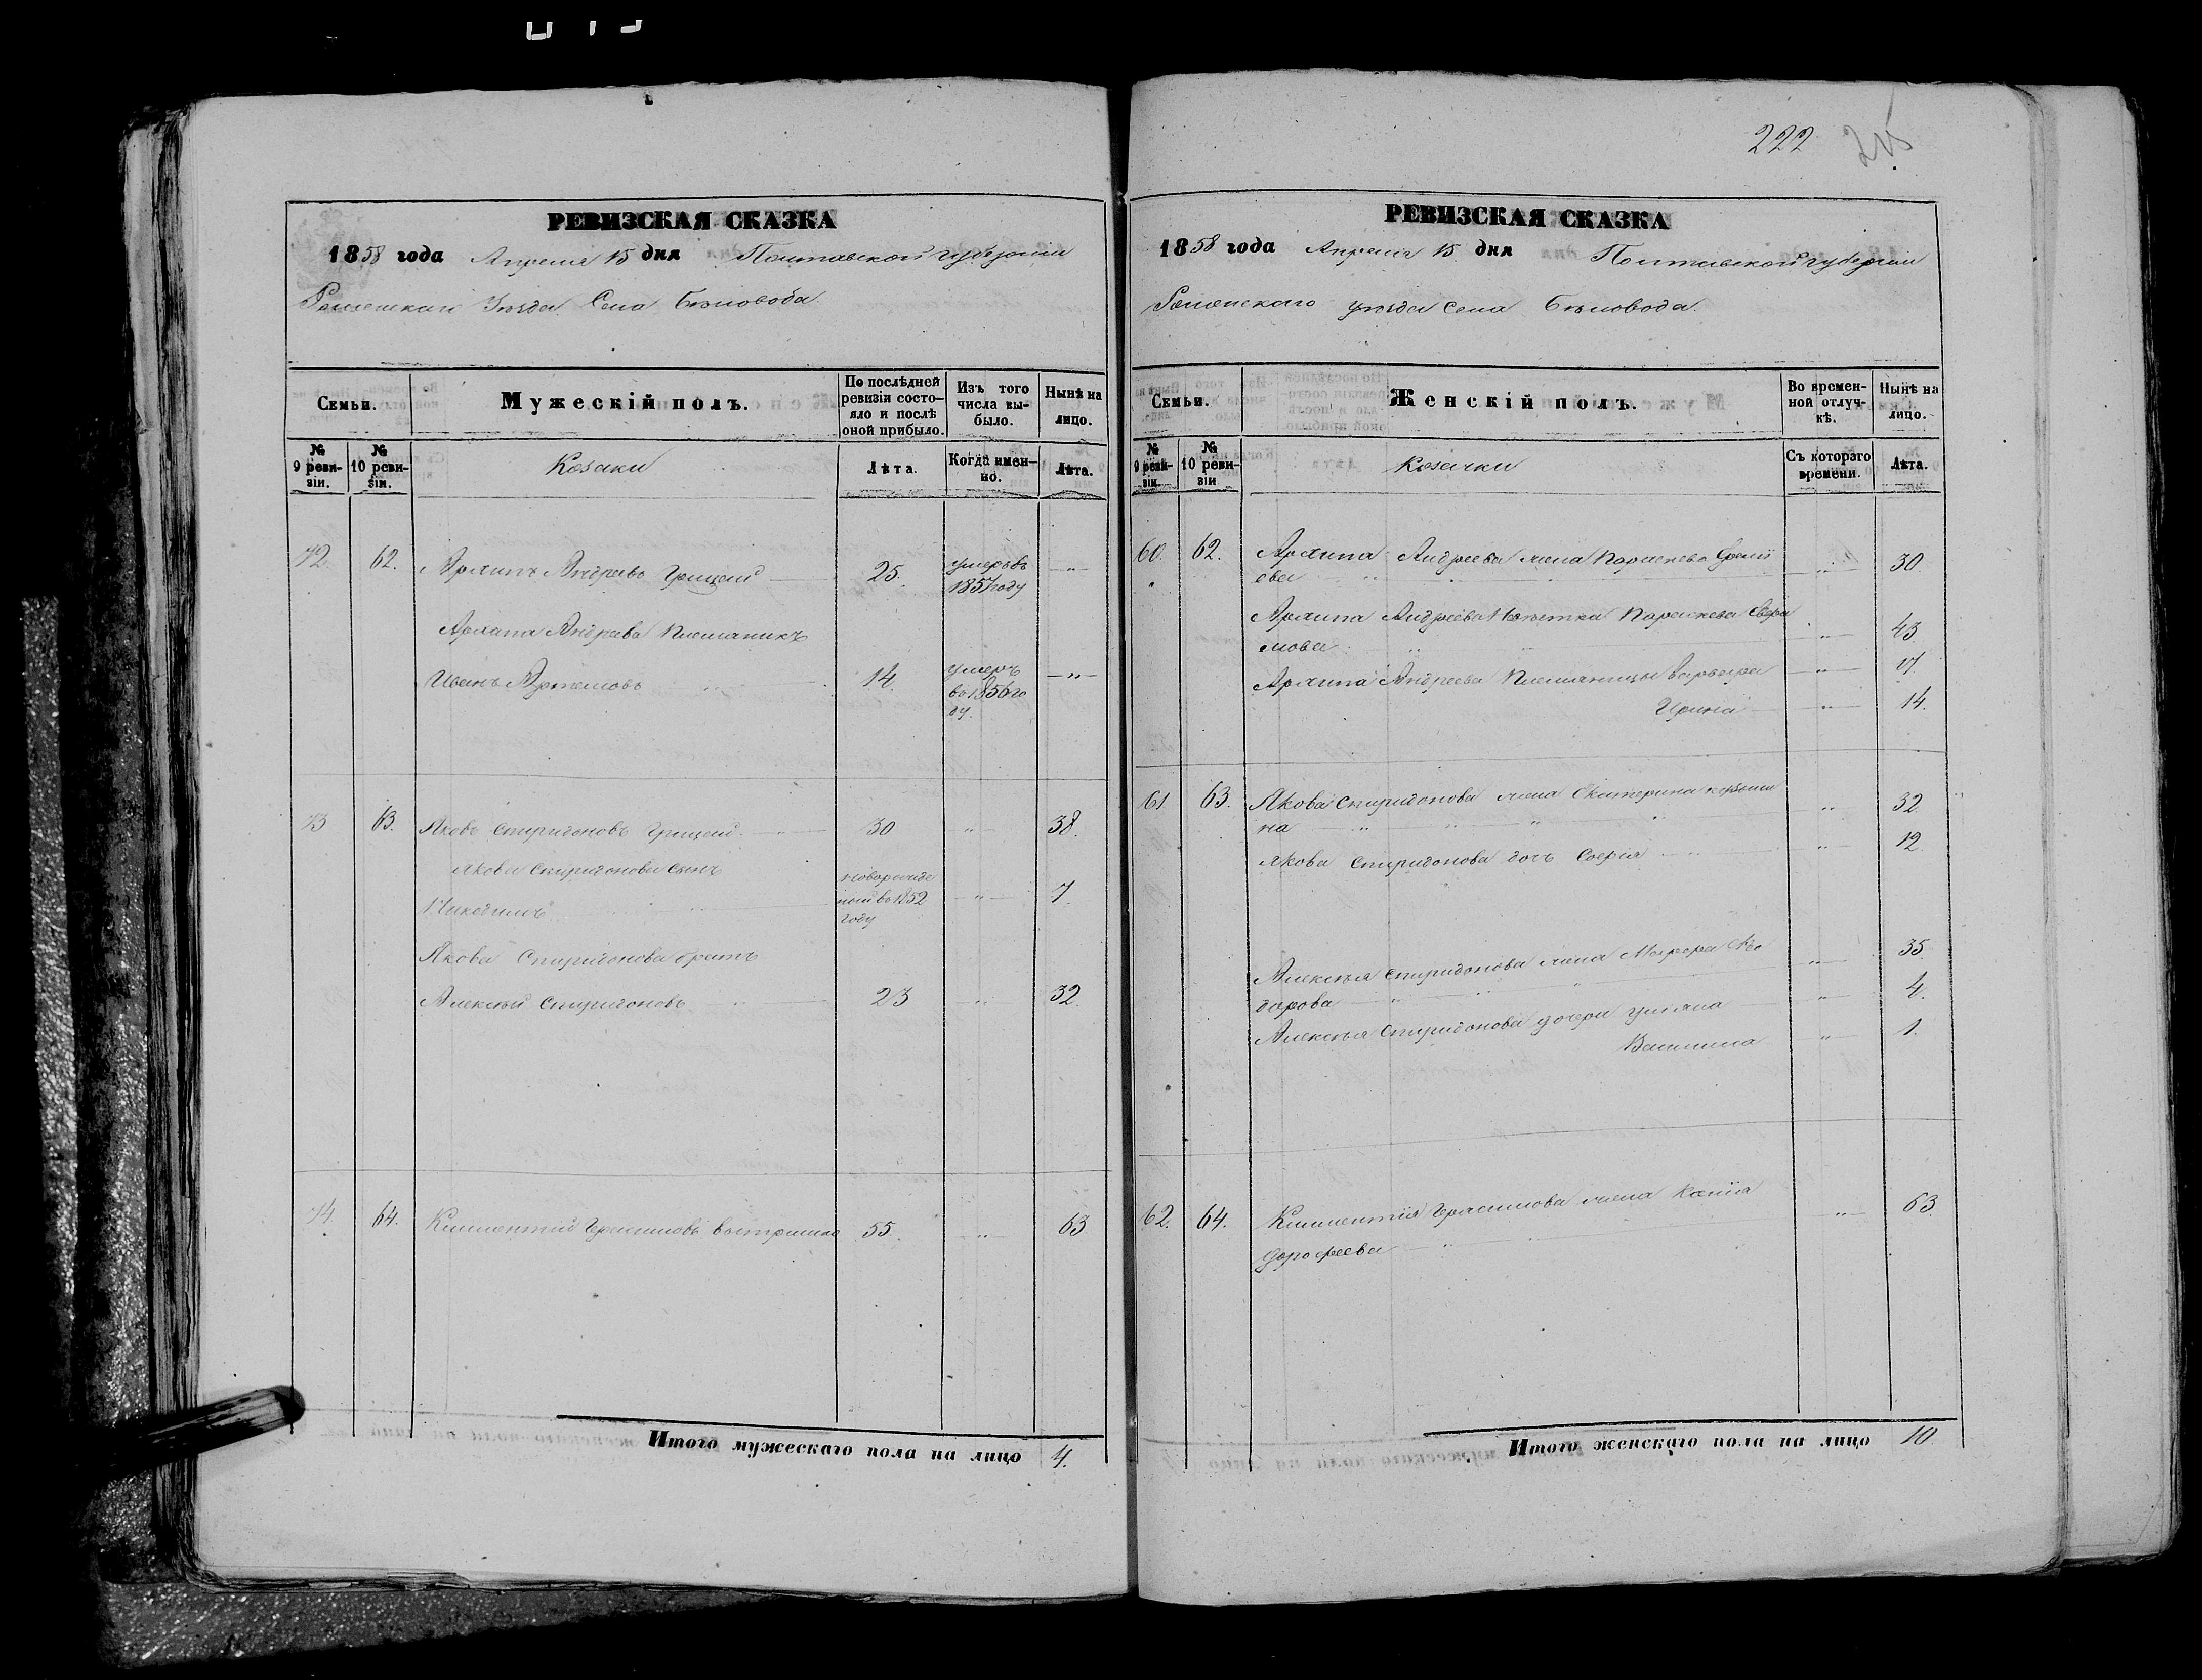 222
215
РЕВИЗСКАЯ СКАЗКА
1858 года Апреля 15 дня Полтавской губернии
Роменскаго Уѣзда Села Бѣловода.
Семьи.
Мужескій полъ.
По послѣдней ревизіи состояло и послѣ оной прибыло.
Изъ того числа выбыло.
Нынѣ на лицо.
№ 9 ревизіи.
№ 10 ревизіи.
Козаки
Лѣта.
Когда именно.
Лѣта.
72. 62. Архипъ Андреевъ Грицей 25. умеръ въ 1857 году —„—
Архипа Андреева Племяникъ
Иванъ Артемовъ „ 14. умеръ въ 1856 году. —„—
73 63. Яковъ Спиридоновъ Грицей „ 30 „ 38.
Якова Спиридонова сынъ
Никодимъ новорожденный въ 1852 году —„— 7.
Якова Спиридонова братъ
Алексѣй Спиридоновъ „ 23 „ 32.
74. 64. Климентій Герасимовъ 55. —„— 63
Итого мужескаго пола на лицо 4.
РЕВИЗСКАЯ СКАЗКА
1858 года Апреля 15 дня Полтавской губернии
Роменскаго уѣзда Села Бѣловода.
Семьи.
Женскій полъ.
Во временной отлучкѣ.
Нынѣ на лицо.
№ 9 ревизіи.
№ 10 ревизіи
Козачки
Съ котораго времени.
Лѣта.
60. 62. Архипа Андреева жена Параскева
ева „ —„— 30.
Архипа Андреева Параскева
мова „ —„— 43
Архипа Андреева Племяницы Варвара —„— 17.
Ирина —„— 14.
61. 63. Якова Спиридонова жена Екатерина
на „ „ „ „ „ 32.
Якова Спиридонова дочь Софія „ „ 12
Алексѣя Спиридонова жена Марфа Ѳео
дорова „ „ „ „ 35.
Алексѣя Спиридонова дочери Ульяна „ 4.
Василиса —„— 1.
62. 64. Климентія Герасимова жена Ксенія
Дорофеева „ „ —„— 63.
Итого женскаго пола на лицо 10.